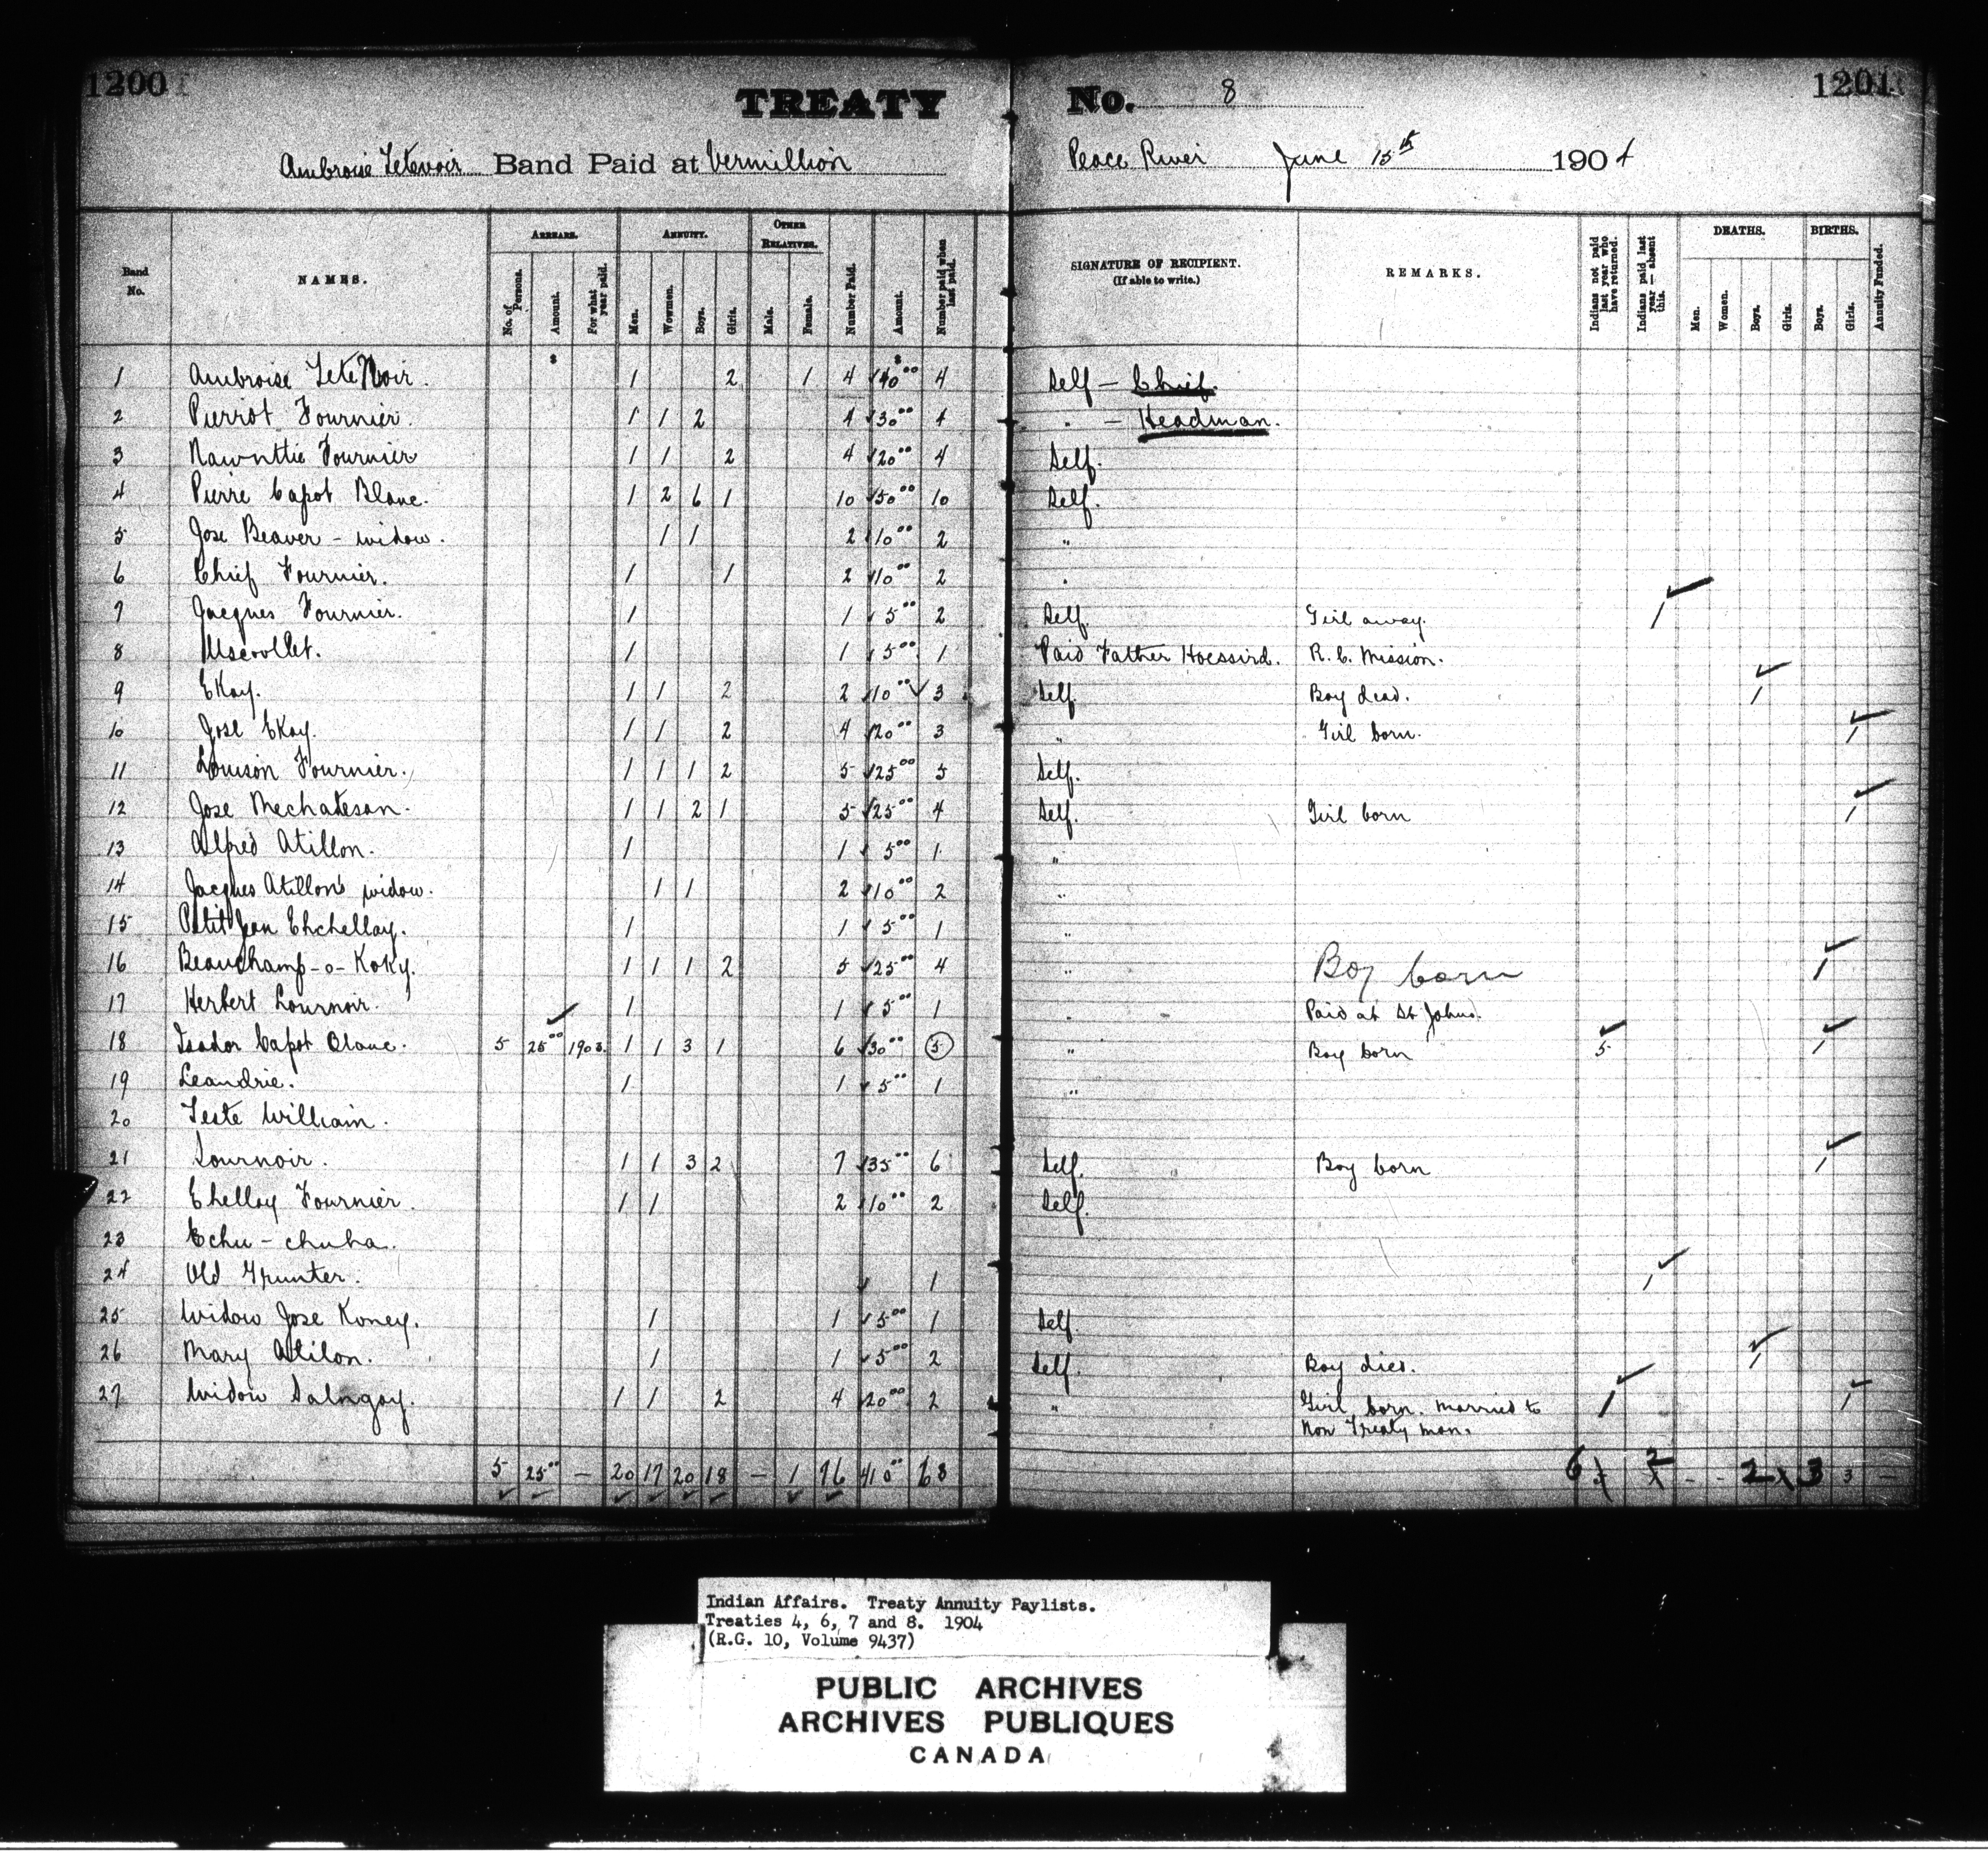 1200 1201
TREATY No. 8
Ambroise Tetenoir Band Paid at Vermillion Peace River June 15th 1904
Band No. NAMES. ARREARS. No. of Persons. Amount. For what year paid. ANNUITY. Men. Women. Boys. Girls. OTHER RELATIVES. Male. Female. Number Paid. Amount. Number paid when last paid. SIGNATURE OF RECIPIENT. (If able to write.) REMARKS. Indians not paid last year who have returned. Indians paid last year—absent this. DEATHS. Men. Women. Boys. Girls. BIRTHS. Boys. Girls. Annuity Funded.
1 Ambroise Tete Noir. 1 2 1 4 $40.00 4 Self - Chief.
2 Pierrot Fournier. 1 1 2 4 30.00 4 " - Headman.
3 Nawnttie Fournier 1 1 2 4 20.00 4 Self.
4 Pierre Capot Blanc. 1 2 6 1 10 50.00 10 Self.
5 Jose Beaver - widow. 1 1 2 10.00 2 "
6 Chief Fournier. 1 1 2 10.00 2 "
7 Jacques Fournier. 1 1 5.00 2 Self. Girl away. 1
8 1 1 5.00 1 Paid Father R.C. Mission.
9 Ekay. 1 1 2 2 10.00 3 Self. Boy dead. 1
10 Jose Ekay. 1 1 2 4 20.00 3 " Girl born. 1
11 Louison Fournier. 1 1 1 2 5 25.00 5 Self.
12 Jose Mechateson. 1 1 2 1 5 25.00 4 Self. Girl born 1
13 Alfred Atillon. 1 1 5.00 1 "
14 Jacques Atillon's widow. 1 1 2 10.00 2 "
15 Petit Jean Ehchellay. 1 1 5.00 1 "
16 Beauchamp-o-Koky. 1 1 1 2 5 25.00 4 " Boy born 1
17 Herbert Lournoir. 1 1 5.00 1 " Paid at St Johns.
18 Isador Capot Blanc. 5 25.00 1903. 1 1 3 1 6 30.00 5 " Boy born 5 1
19 Leandrie. 1 1 5.00 1 "
20 Teste William.
21 Lournoir. 1 1 3 2 7 35.00 6 Self. Boy born 1
22 Ehellay Fournier. 1 1 2 10.00 2 Self.
23 Echu-chuha.
24 Old Grunter. 1 1
25 Widow Jose Koney. 1 1 5.00 1 Self.
26 Mary Atilon. 1 1 5.00 2 Self. Boy died. 1
27 Widow Salngay. 1 1 2 4 20.00 2 " Girl born. Married to 1 1
Non Treaty man.
5 25.00 - 20 17 20 18 - 1 76 410.00 68 6 2 - - 2 3 3 -
Indian Affairs. Treaty Annuity Paylists.
Treaties 4, 6, 7 and 8. 1904
(R.G. 10, Volume 9437)
PUBLIC ARCHIVES
ARCHIVES PUBLIQUES
CANADA